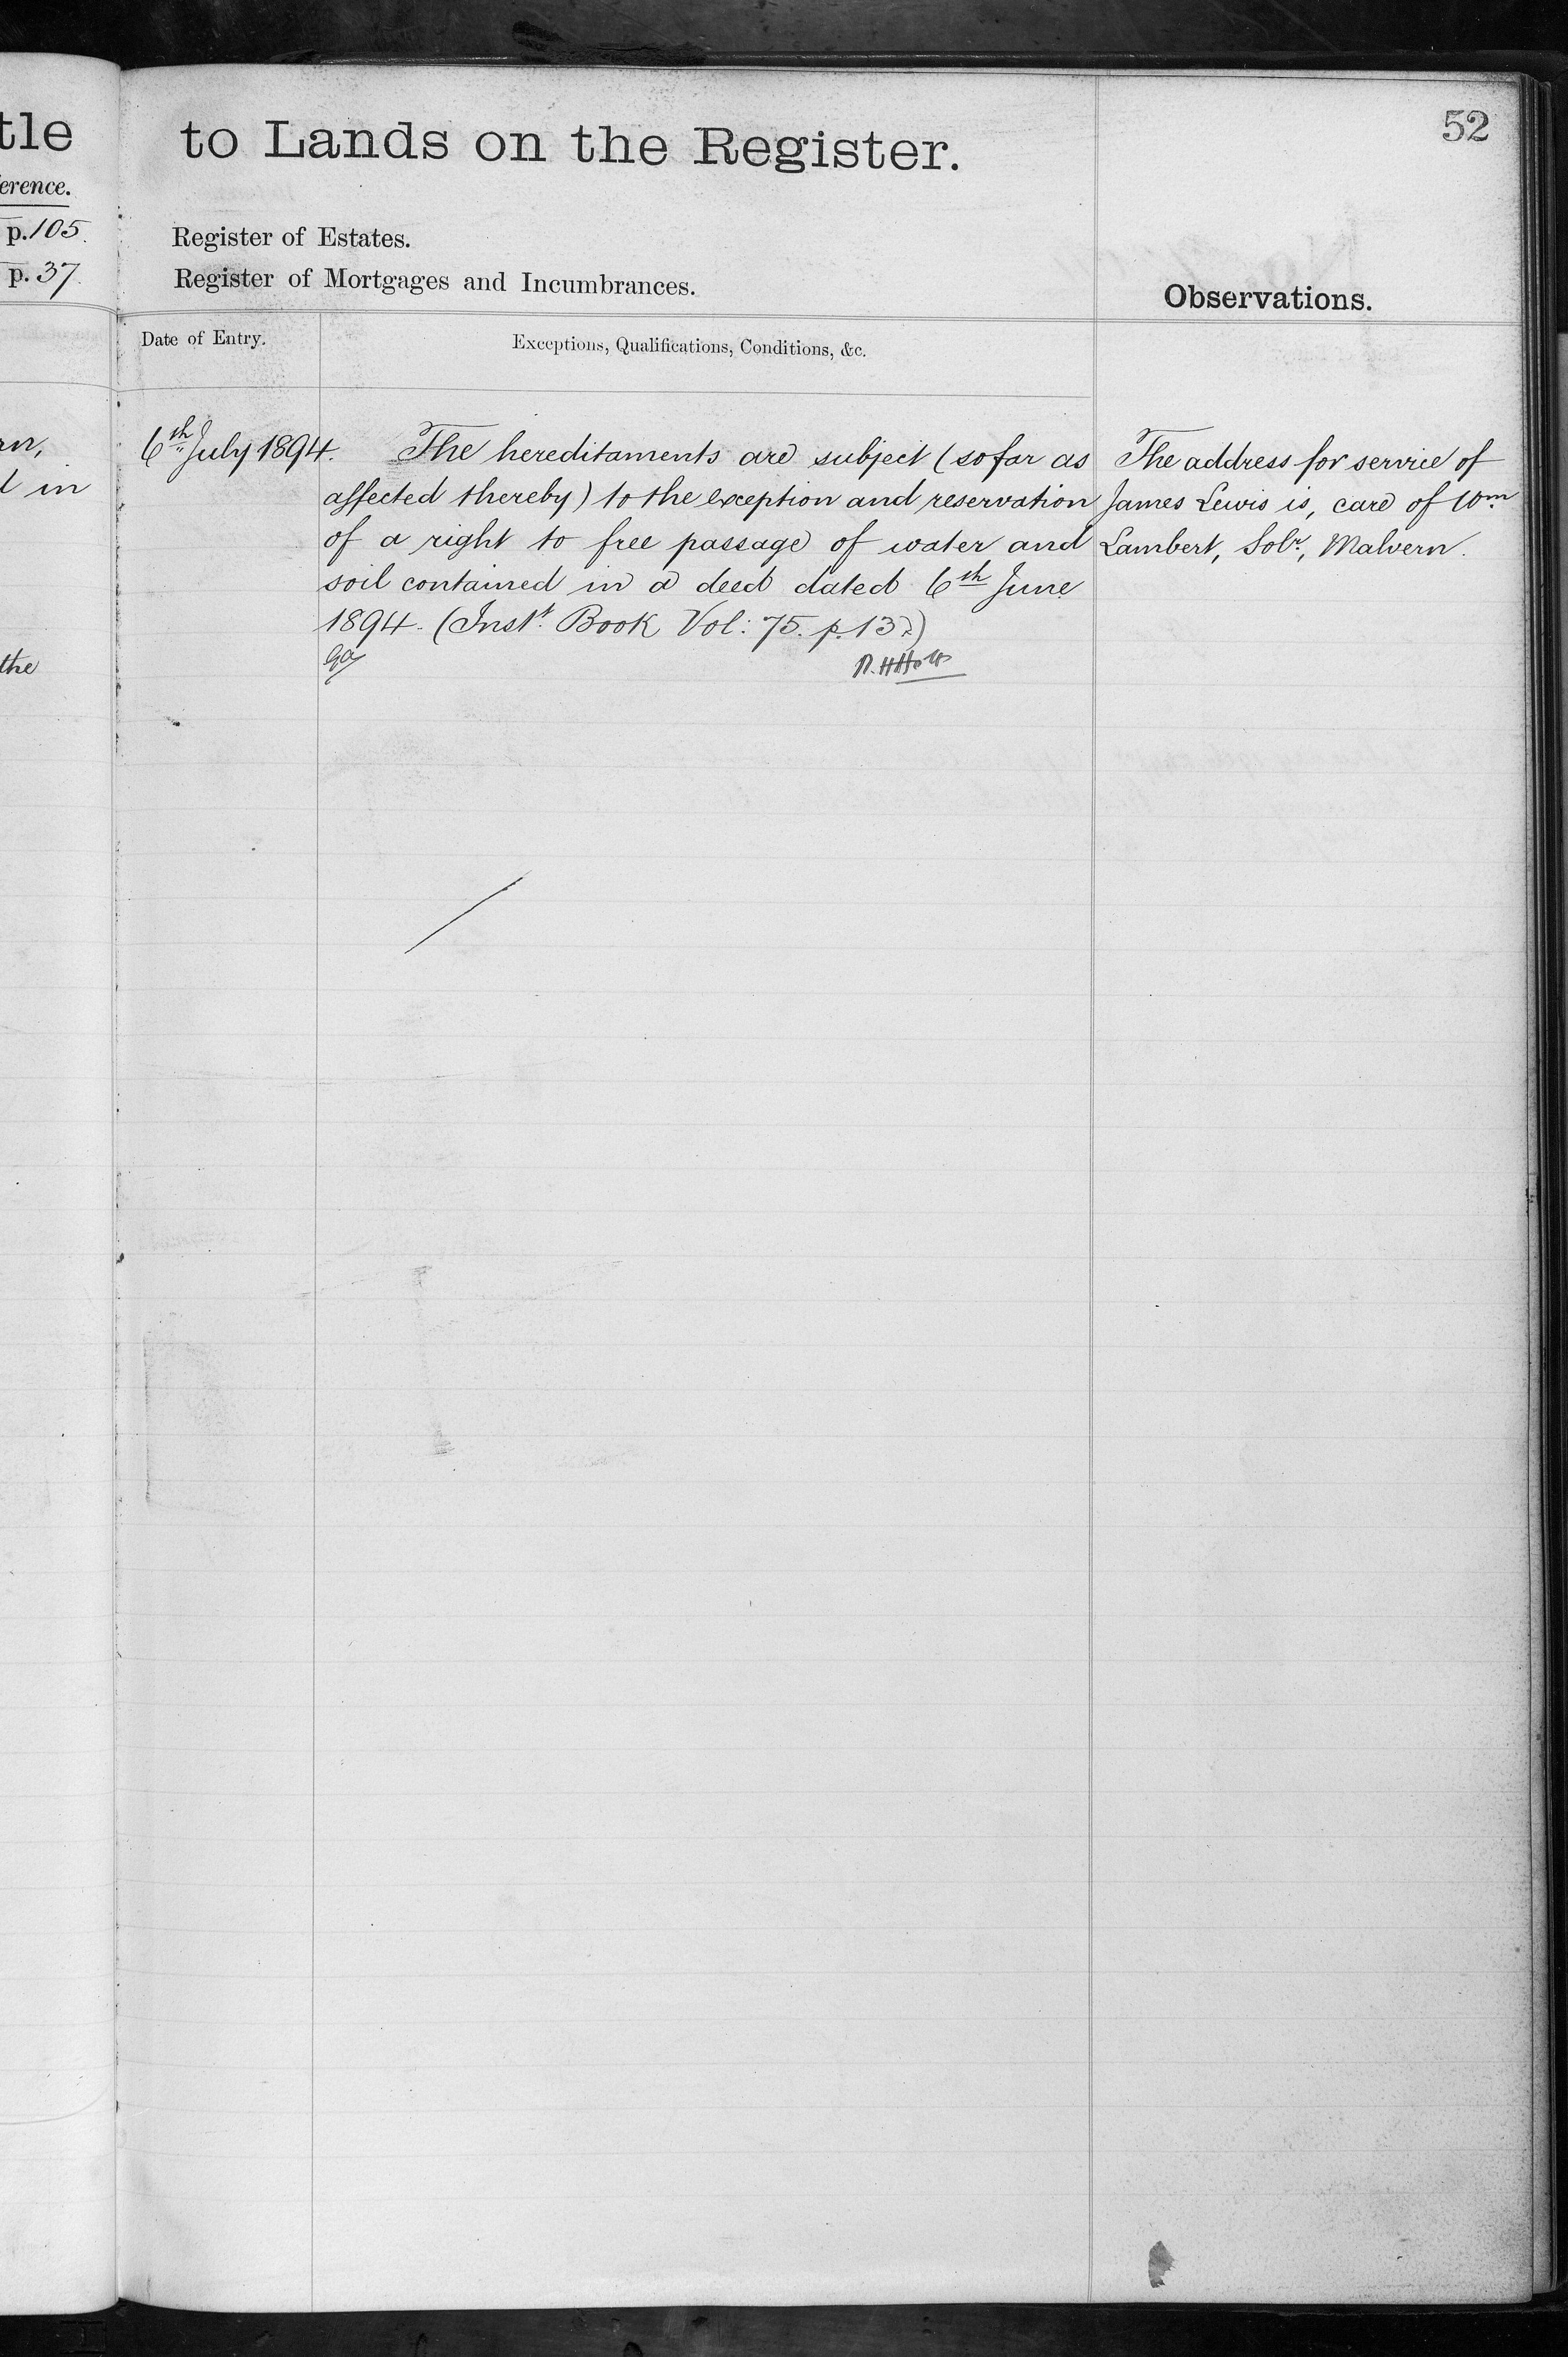 tle
erence.
p. 105.
p. 37.
in
the
to Lands on the Register.
52
Register of Estates.
Register of Mortgages and Incumbrances.
Observations.
Date of Entry.
Exceptions, Qualifications, Conditions, &c.
6th July 1894.
The hereditaments are subject (so far as
affected thereby) to the exception and reservation
of a right to free passage of water and
soil contained in a deed dated 6th June
1894. (Instt. Book Vol: 75. p.
The address for service of
James Lewis is, care of Wm.
Lambert, Solr., Malvern.